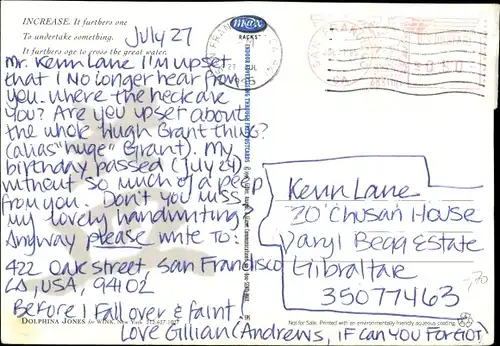 INCREASE. It furthers one
To undertake something.
It furthers one to cross the great water.
July 27
Mr. Kevin Lane I'm upset
that I No longer hear from
you. Where the heck are
you? Are you upset about
the whole Hugh Grant thing?
(alias "huge" Grant). My
birthday passed (July 24)
without so much of a peep
from you. Don't you miss
my lovely handwriting
Anyway please write to:
422 Oak Street, San Francisco
CA, USA, 94102
Before I fall over & faint.
Love Gillian (Andrews, if can you forgot)
DOLPHINA JONES for WINK, New York
max
RACKS
Kevin Lane
30 Chusan House
Varyl Begg Estate
Gibraltar
35077463
,70
Not for Sale. Printed with an environmentally friendly aqueous coating.